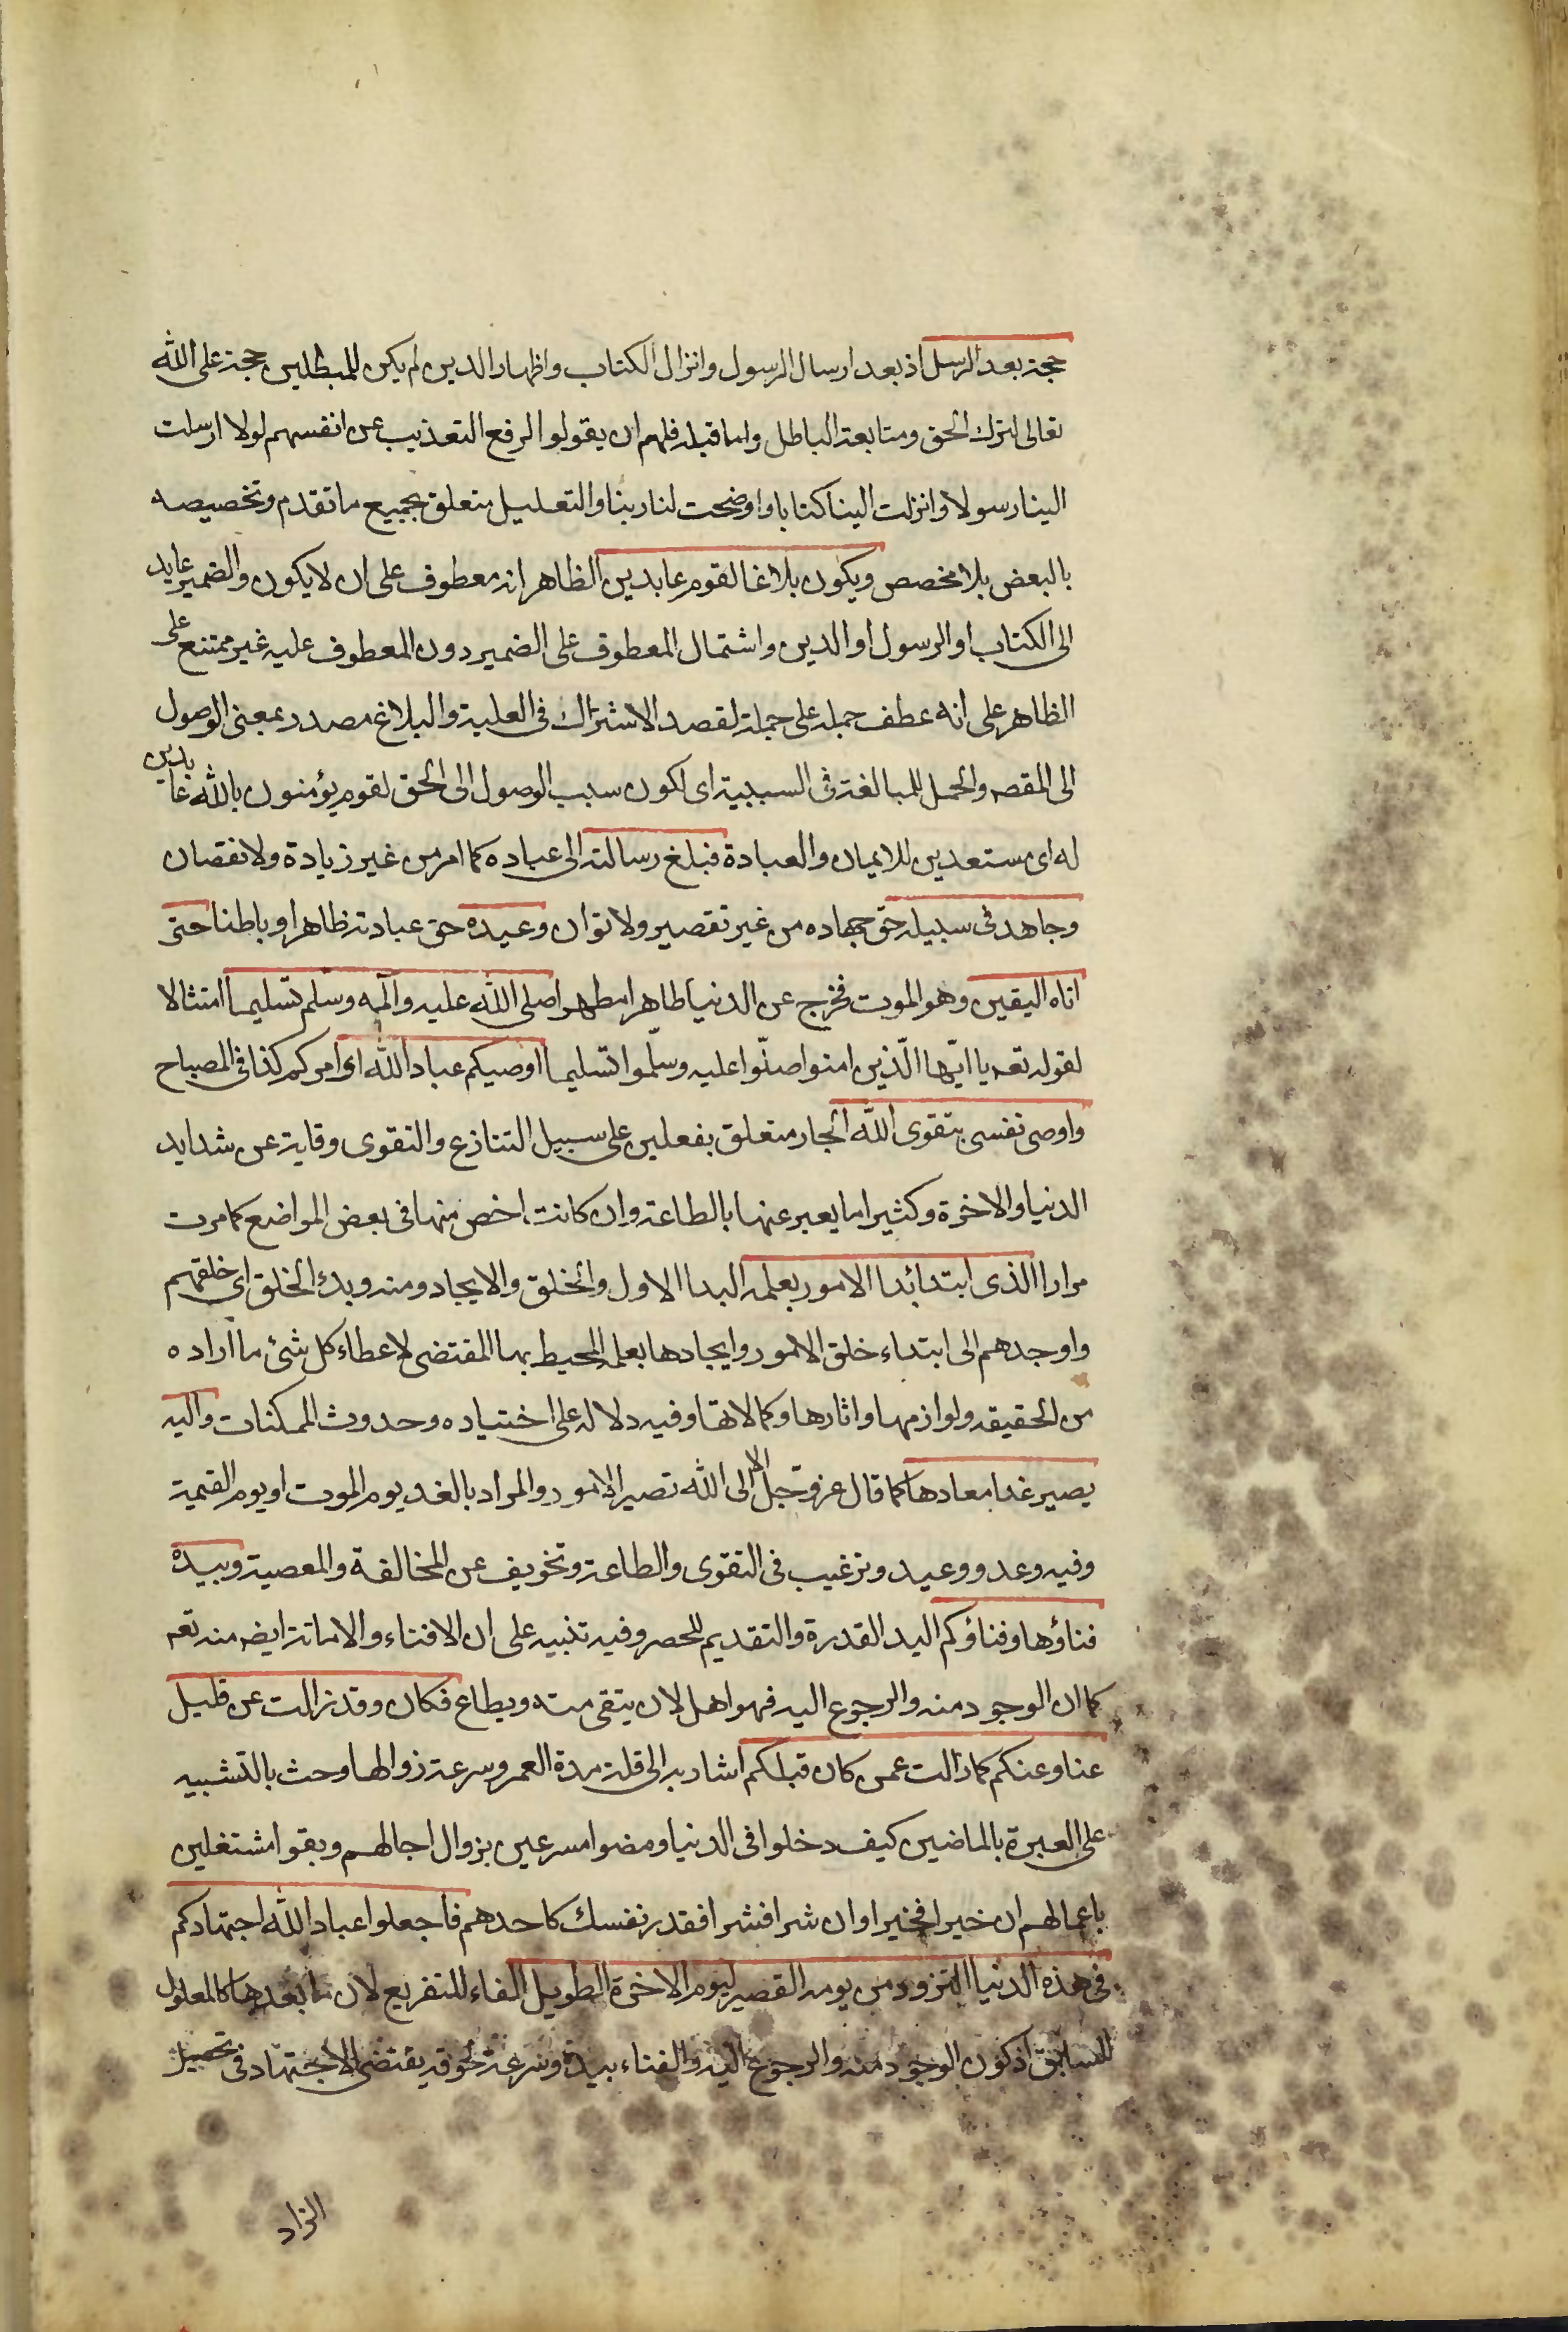 حجة بعد الرسل اذ بعد ارسال الرسول وانزال الكتاب واظهار الدين لم يكن للمبطلين حجة على الله
تعالى لترك الحق ومتابعة الباطل واما قبله فلهم ان يقولوا لرفع التعذيب عن انفسهم لولا ارسلت
الينا رسولا وانزلت الينا كتابا واوضحت لنا ربنا والتعليل متعلق بجميع ما تقدم وتخصيصه
بالبعض بلا مخصص ويكون بلاغا لقوم عابدين الظاهر انه معطوف على ان لا يكون والضمير عايد
الى الكتاب او الرسول او الدين واشتمال المعطوف على الضمير دون المعطوف عليه غير ممتنع على
الظاهر على انه عطف جملة على جملة لقصد الاشتراك في العلية والبلاغ مصدر بمعنى الوصول
الى المقصه والحمل للمبالغة في السببية اى لكون سبب الوصول الى الحق لقوم يؤمنون بالله عابدين
له اى مستعدين للايمان والعبادة فبلغ رسالته الى عباده كما امر من غير زيادة ولا نقصان
وجاهد في سبيله حق جهاده من غير تقصير ولا توان وعبده حق عبادته ظاهرا وباطنا حتى
اتاه اليقين وهو الموت فخرج عن الدنيا طاهرا مطهرا صلى الله عليه وآله وسلم تسليما امتثالا
لقوله تعه يا ايّها الّذين امنوا صلّوا عليه وسلّموا تسليما اوصيكم عباد الله اى امركم كذا في المصباح
واوصى نفسى بتقوى الله الجار متعلق بفعلين على سبيل التنازع والتقوى وقاية عن شدايد
الدنيا والاخرة وكثيرا ما يعبر عنها بالطاعة وان كانت اخص منها في بعض المواضع كما مرت
مرارا الذى ابتدا بدا الامور بعلمه البدا الاول والخلق والايجاد ومنه وبدء الخلق اى خلقهم
واوجدهم الى ابتداء خلق الامور وايجادها بعلمه المحيط بها المقتضى لاعطاء كل شئ ما اراده
من الحقيقه ولوازمها واثارها وكمالاتها وفيه دلاله على اختياره وحدوث الممكنات واليه
يصير غدا معادها كما قال عز وجلّ الا الى الله تصير الامور والمراد بالغد يوم الموت او يوم القيمة
وفيه وعد ووعيد وترغيب في التقوى والطاعة وتخويف عن المخالفة والمعصية وبيده
فناؤها وفناؤكم اليد القدرة والتقديم للحصر وفيه تنبيه على ان الافناء والاماتة ايضه منه تعه
كما ان الوجود منه والرجوع اليه فهو اهل لان يتقى منه ويطاع فكان وقد زالت عن قليل
عنا وعنكم كما زالت عمن كان قبلكم اشار به الى قلة مدة العمر وسرعة زوالها وحث بالتشبيه
على العبرة بالماضين كيف دخلوا في الدنيا ومضوا مسرعين بزوال اجالهم وبقوا مشتغلين
باعمالهم ان خيرا فخيرا وان شرا فشرا فقدر نفسك كاحدهم فاجعلوا عباد الله اجتهادكم
في هذه الدنيا التزود من يومه القصير ليوم الاخرة الطويل الفاء للتفريع لان ما بعدها كالمعلول
للسابق اذ كون الوجود منه والرجوع اليه والفناء بيده وسرعة لحوقه يقتضى الاجتهاد في تحصيل
الزاد